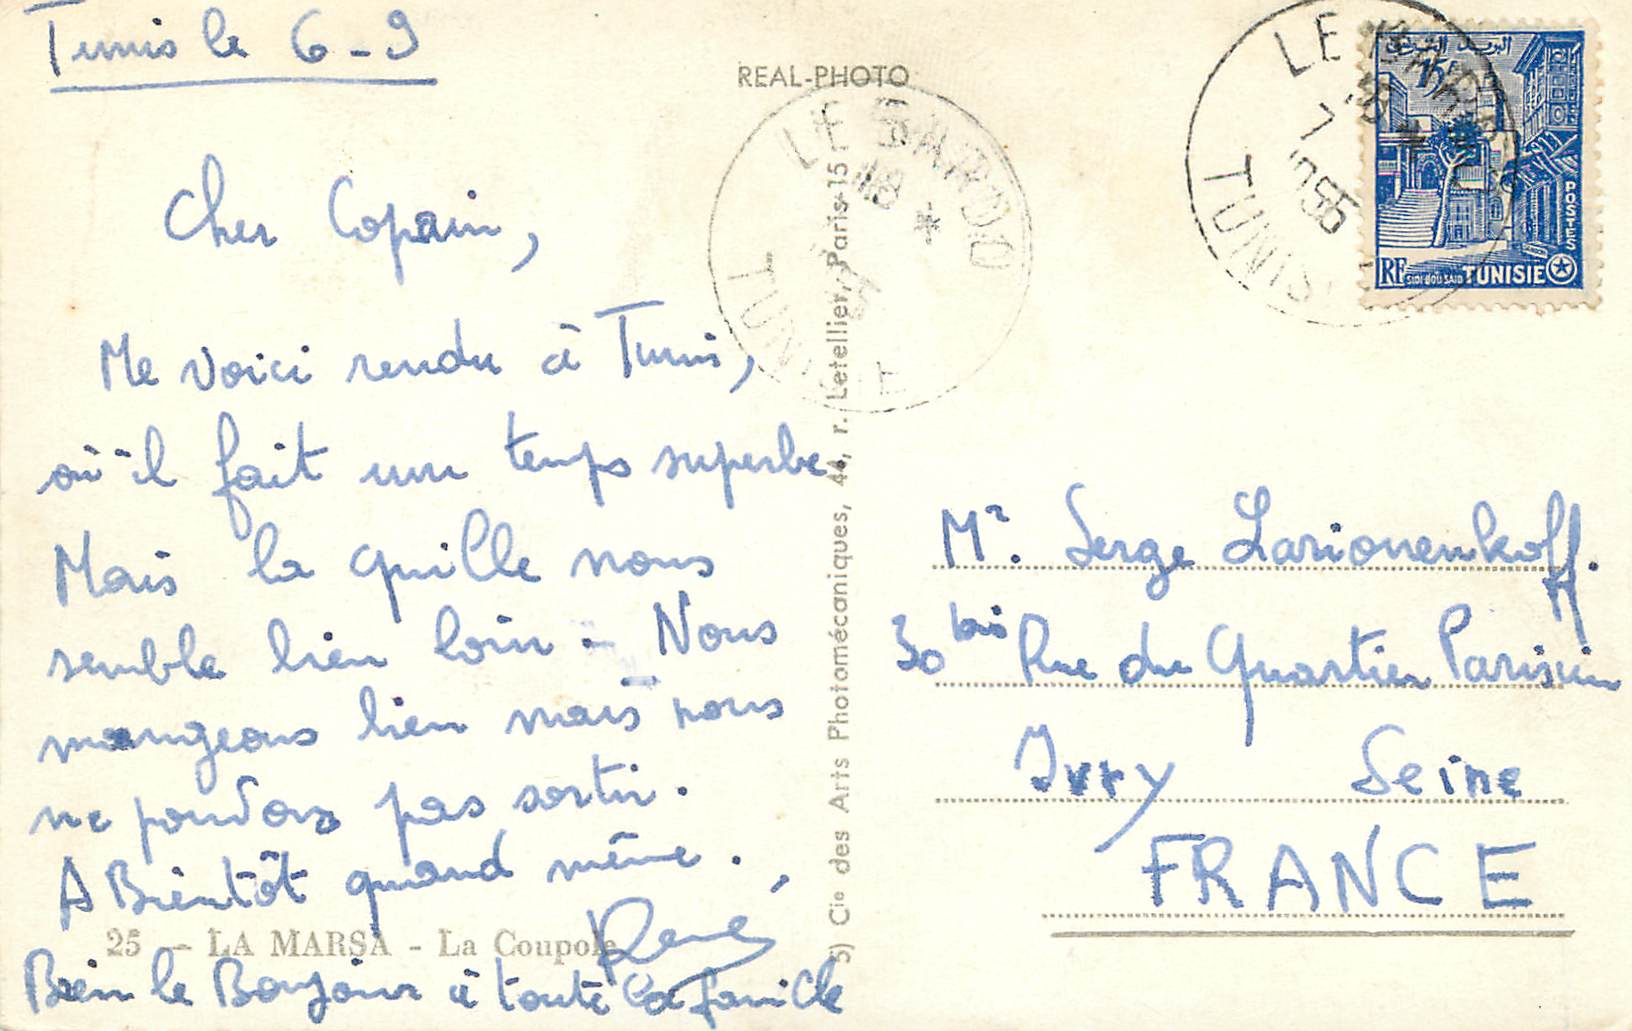 Tunis le 6-9
REAL-PHOTO
Cher Copain,
Me voici rendu à Tunis,
où il fait un temps superbe.
Mais la quille nous
semble bien loin - Nous
mangeons bien mais nous
ne pouvons pas sortir.
A Bientôt quand même.
René
25 - LA MARSA - La Coupole
Bien le Bonjour à toute la famille
5) Cie des Arts Photomécaniques, 44, r. Letellier, Paris-15
LE BARDO
18 *
TUNISIE
LE BARDO
18 *
7
1955
TUNISIE
15f
POSTES
RF SIDI BOU SAID TUNISIE
Mr. Serge Larionenkoff.
30 bis Rue du Quartier Parisien
Ivry Seine
FRANCE